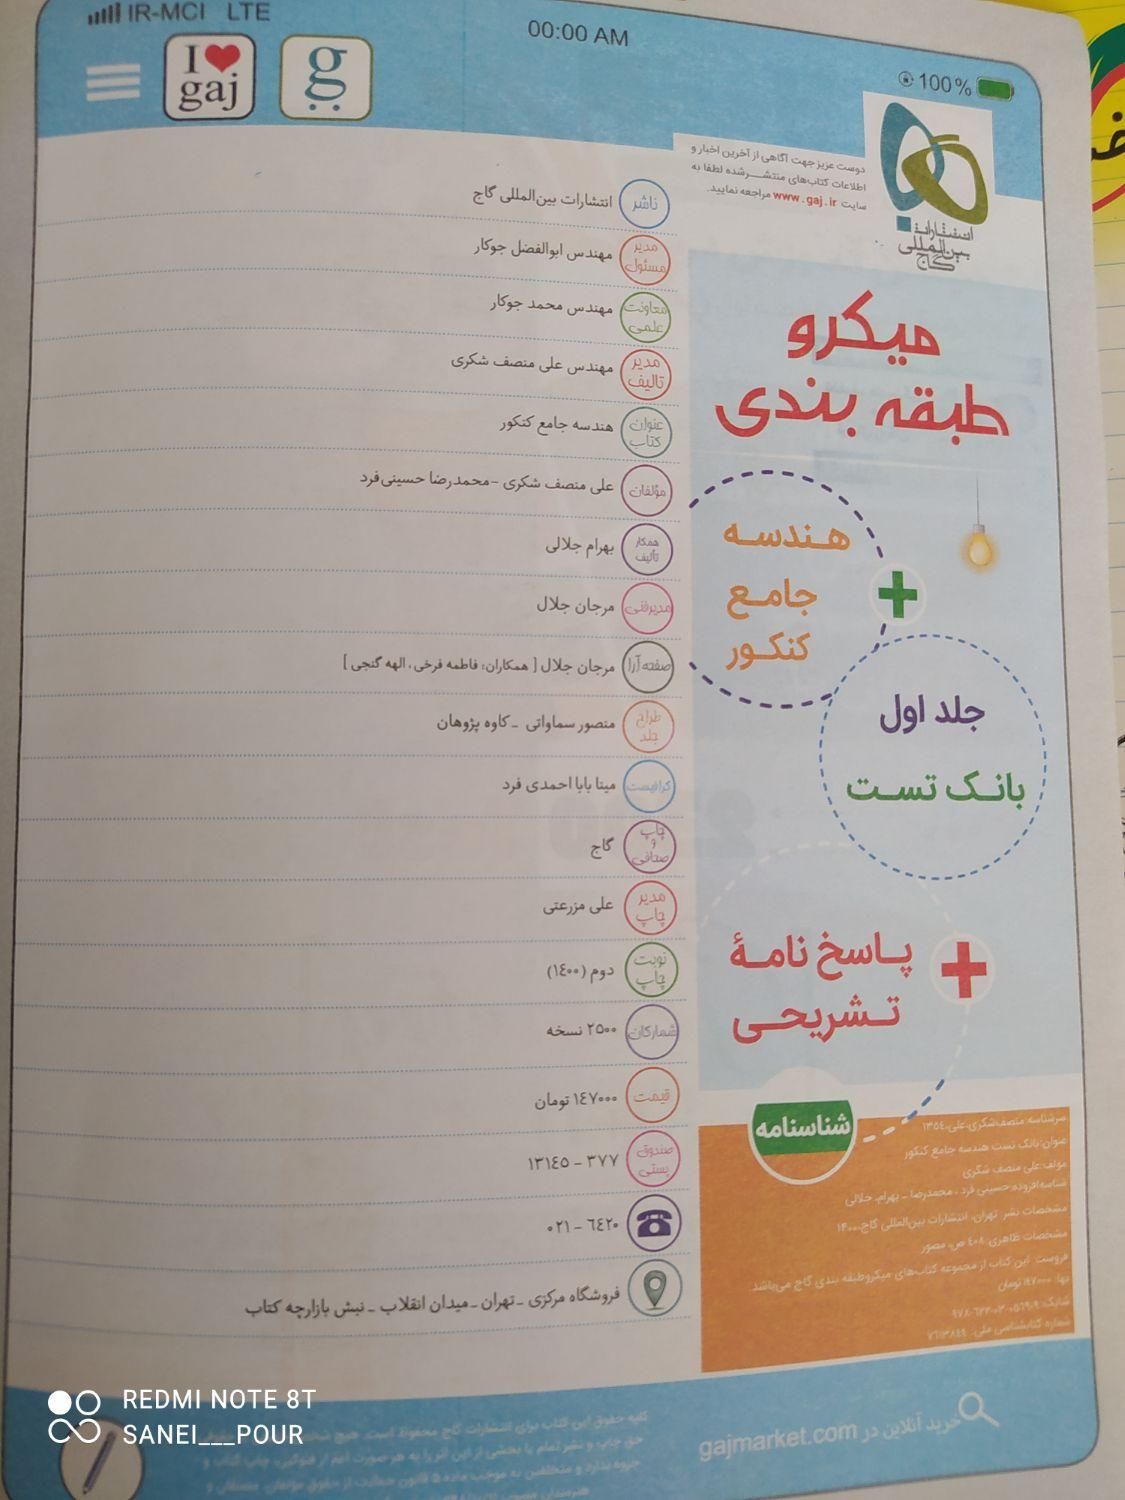 IR-MCI LTE
00:00 AM
100%
I ❤ gaj
g
دوست عزیز جهت آگاهی از آخرین اخبار و
اطلاعات کتاب‌های منتشرشده لطفا به
سایت www.gaj.ir مراجعه نمایید.
انتشارات
بین‌المللی
گاج
میکرو
طبقه بندی
هندسه
جامع
کنکور
+
جلد اول
بانک تست
+
پاسخ نامهٔ
تشریحی
ناشر انتشارات بین‌المللی گاج
مدیر مسئول مهندس ابوالفضل جوکار
معاونت علمی مهندس محمد جوکار
مدیر تالیف مهندس علی منصف شکری
عنوان کتاب هندسه جامع کنکور
مؤلفان علی منصف شکری -محمدرضا حسینی‌فرد
همکار تألیف بهرام جلالی
مدیرفنی مرجان جلال
صفحه آرا مرجان جلال [ همکاران: فاطمه فرخی ، الهه گنجی ]
طراح جلد منصور سماواتی - کاوه پژوهان
گرافیست مینا بابا احمدی فرد
چاپ و صحافی گاج
مدیر چاپ علی مزرعتی
نوبت چاپ دوم (۱٤۰۰)
شمارگان ۲۵۰۰ نسخه
قیمت ۱٤۷۰۰۰ تومان
صندوق پستی ۳۷۷ - ۱۳۱٤۵
٦٤۲۰ - ۰۲۱
فروشگاه مرکزی - تهران - میدان انقلاب - نبش بازارچه کتاب
شناسنامه
سرشناسه: منصف‌شکری،علی،۱۳۵٤
عنوان: بانک تست هندسه جامع کنکور
مولف: علی منصف شکری
شناسه افزوده: حسینی فرد ، محمدرضا - بهرام، جلالی
مشخصات نشر: تهران، انتشارات بین‌المللی گاج،۱۴۰۰
مشخصات ظاهری: ٤۰۸ ص، مصور
فروست: این کتاب از مجموعه کتاب‌های میکروطبقه بندی گاج می‌باشد.
بها: ۱٤۷۰۰۰ تومان
شابک:
شماره کتابشناسی ملی:
خرید آنلاین در gajmarket.com
کلیه حقوق این کتاب برای انتشارات گاج محفوظ است. هیچ
حق چاپ و نشر تمام یا بخشی از این اثر را به هر صورت اعم از فتوکپی، چاپ کتاب و
جزوه ندارد و متخلفین به موجب ماده ۵ قانون حمایت از حقوق مؤلفان، مصنفان و
REDMI NOTE 8T
SANEI___POUR